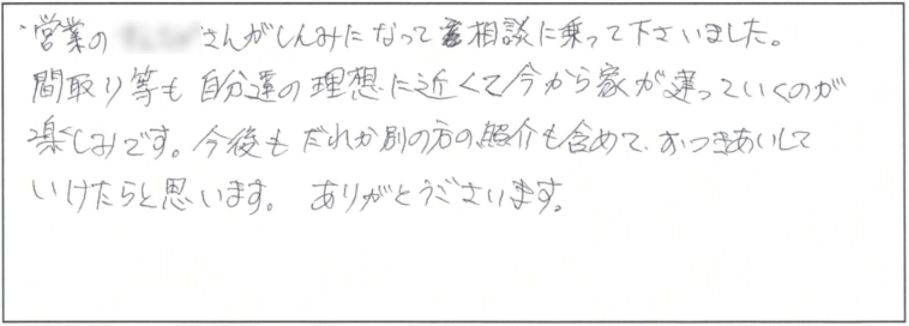 ・営業の さんがしんみになって相談に乗って下さいました。
間取り等も自分達の理想に近くて今から家が建っていくのが
楽しみです。今後もだれか別の方の紹介も含めて、おつきあいして
いけたらと思います。 ありがとうございます。